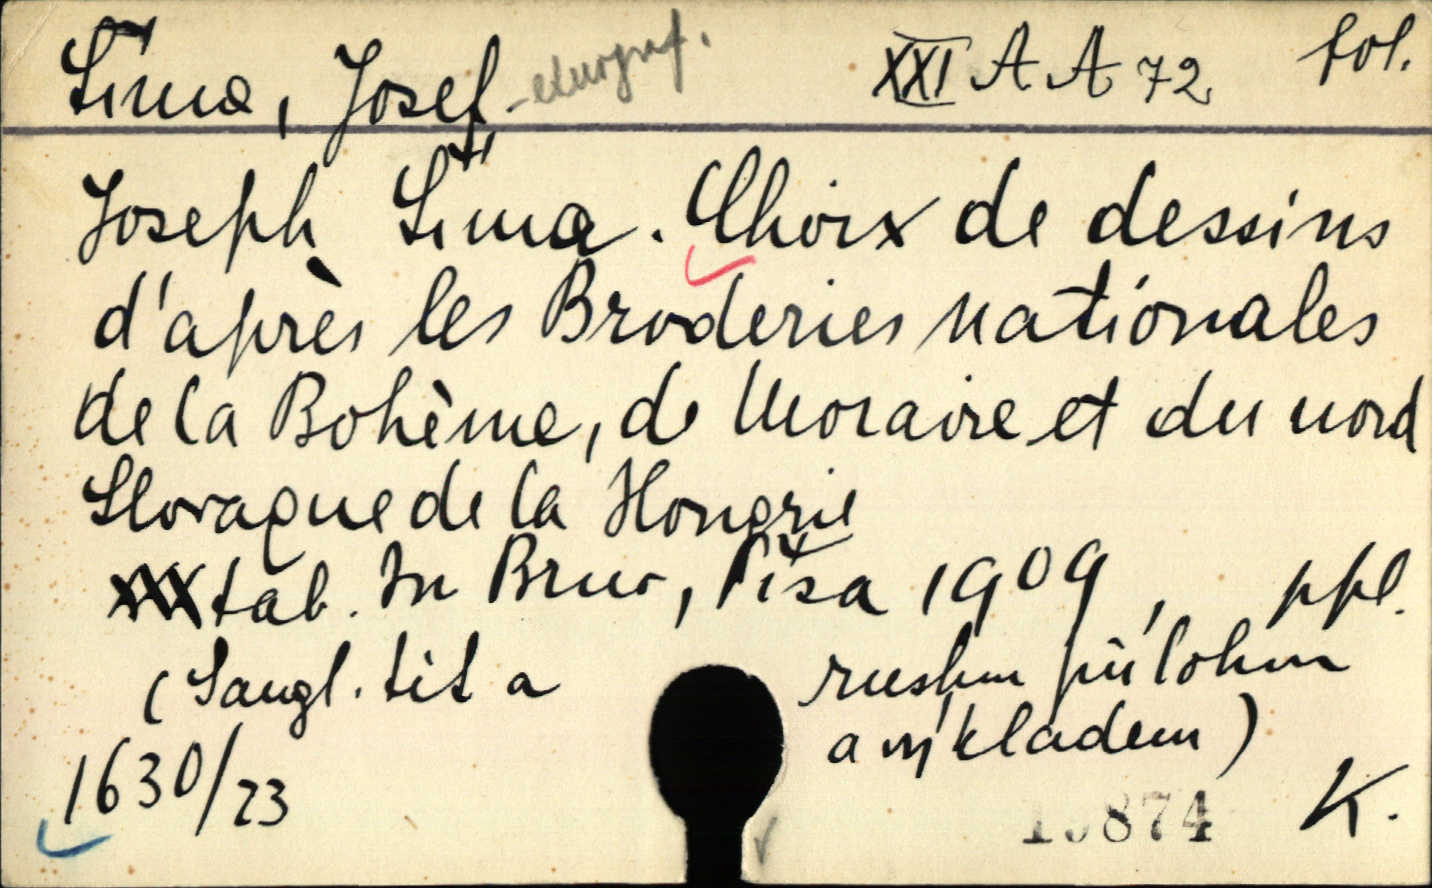 Šíma, Josef - etnograf. XXI A A 72 fol.
Joseph Šíma. Choix de dessins
d'après les Broderies nationales
de la Bohème, de Moravie et du nord
Slovaque de la Hongrie
XXX tab. In Brno, Píša 1909, ppl.
(S angl. tit a přílohm
a výkladem)
1630/23
874 K.